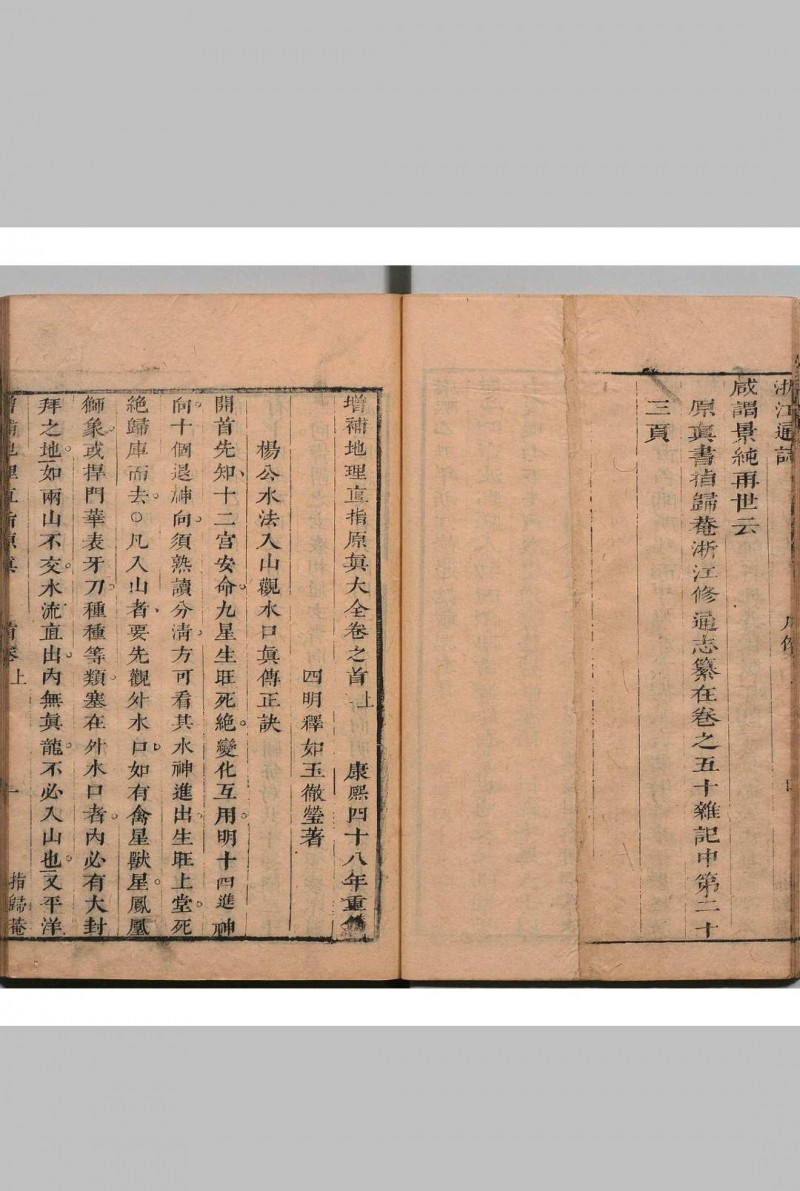 浙江通志
序傳
咸謂景純再世云
原眞書指歸菴浙江修通志纂在卷之五十雜記中第二十
三頁
增補地理直指原眞大全卷之首上 康熙四十八年重鐫
四明釋如玉徹瑩著
楊公水法入山觀水口眞傳正訣
開首先知十二宮安命九星生旺死絕變化互用明十四進神
向十個退神向須熟讀分淸方可看其水神進出生旺上堂死
絕歸庫而去○凡入山者要先觀外水口如有禽星獸星鳳凰
獅象或捍門華表牙刀種種等類塞在外水口者內必有大封
拜之地如兩山不交水流直出內無眞龍不必入山也又平洋
增補地理直指原眞 首卷上 一 指歸菴